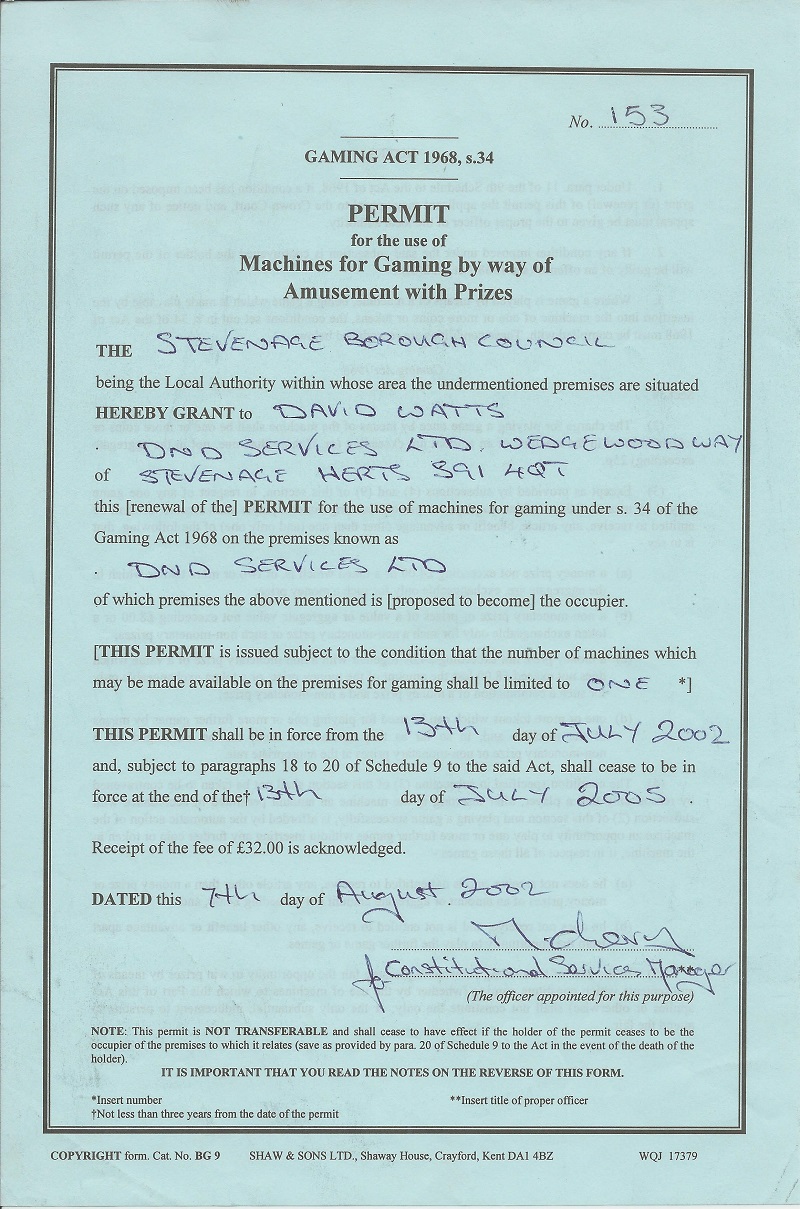 No. 153
GAMING ACT 1968, s.34
PERMIT
for the use of
Machines for Gaming by way of
Amusement with Prizes
THE STEVENAGE BOROUGH COUNCIL
being the Local Authority within whose area the undermentioned premises are situated
HEREBY GRANT to DAVID WATTS
DND SERVICES LTD. WEDGEWOOD WAY
of STEVENAGE HERTS SG1 4QT
this [renewal of the] PERMIT for the use of machines for gaming under s. 34 of the
Gaming Act 1968 on the premises known as
DND SERVICES LTD
of which premises the above mentioned is [proposed to become] the occupier.
[THIS PERMIT is issued subject to the condition that the number of machines which
may be made available on the premises for gaming shall be limited to ONE *]
THIS PERMIT shall be in force from the 13th day of JULY 2002
and, subject to paragraphs 18 to 20 of Schedule 9 to the said Act, shall cease to be in
force at the end of the† 13th day of JULY 2005.
Receipt of the fee of £32.00 is acknowledged.
DATED this 7th day of August. 2002
for Constitutional Services Manager
(The officer appointed for this purpose)
NOTE: This permit is NOT TRANSFERABLE and shall cease to have effect if the holder of the permit ceases to be the
occupier of the premises to which it relates (save as provided by para. 20 of Schedule 9 to the Act in the event of the death of the
holder).
IT IS IMPORTANT THAT YOU READ THE NOTES ON THE REVERSE OF THIS FORM.
*Insert number **Insert title of proper officer
†Not less than three years from the date of the permit
COPYRIGHT form. Cat. No. BG 9 SHAW & SONS LTD., Shaway House, Crayford, Kent DA1 4BZ WQJ 17379